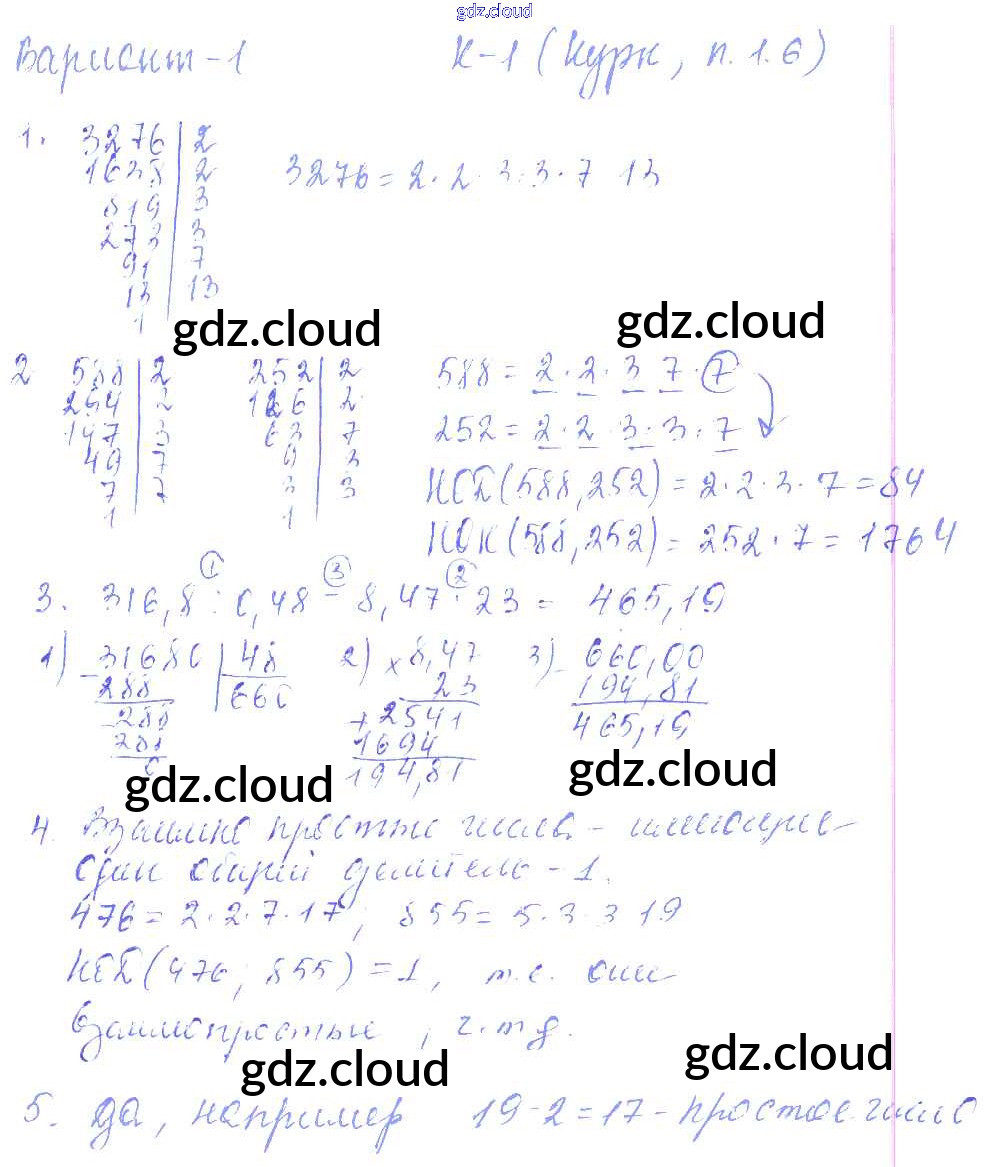 gdz.cloud
Вариант-1 К-1 (Курк, п. 1.6)
1. 3276 | 2
1638 | 2 3276 = 2·2·3·3·7 13
819 | 3
273 | 3
91 | 7
13 | 13
1
gdz.cloud gdz.cloud
2 588 | 2 252 | 2 588 = 2·2·3 7·7
294 | 2 126 | 2 252 = 2·2·3·3·7
147 | 3 63 | 7
49 | 7 9 | 3 НОД(588,252) = 2·2·3·7 = 84
7 | 7 3 | 3
1 1 НОК(588,252) = 252·7 = 1764
1 3 2
3. 316,8 : 0,48 - 8,47 · 23 = 465,19
1) 31680 | 48 2) × 8,47 3) - 660,00
288 | 660 23 194,81
- 288 + 2541 465,19
288 1694
0 194,81
gdz.cloud gdz.cloud
4. Взаимно простые числа - имеющие
один общий делитель - 1.
476 = 2·2·7·17; 855 = 5·3·3 19
НОД(476; 855) = 1, т.е. они
взаимопростые, ч.т.д.
gdz.cloud gdz.cloud
5. Да, например 19-2=17 - простое число